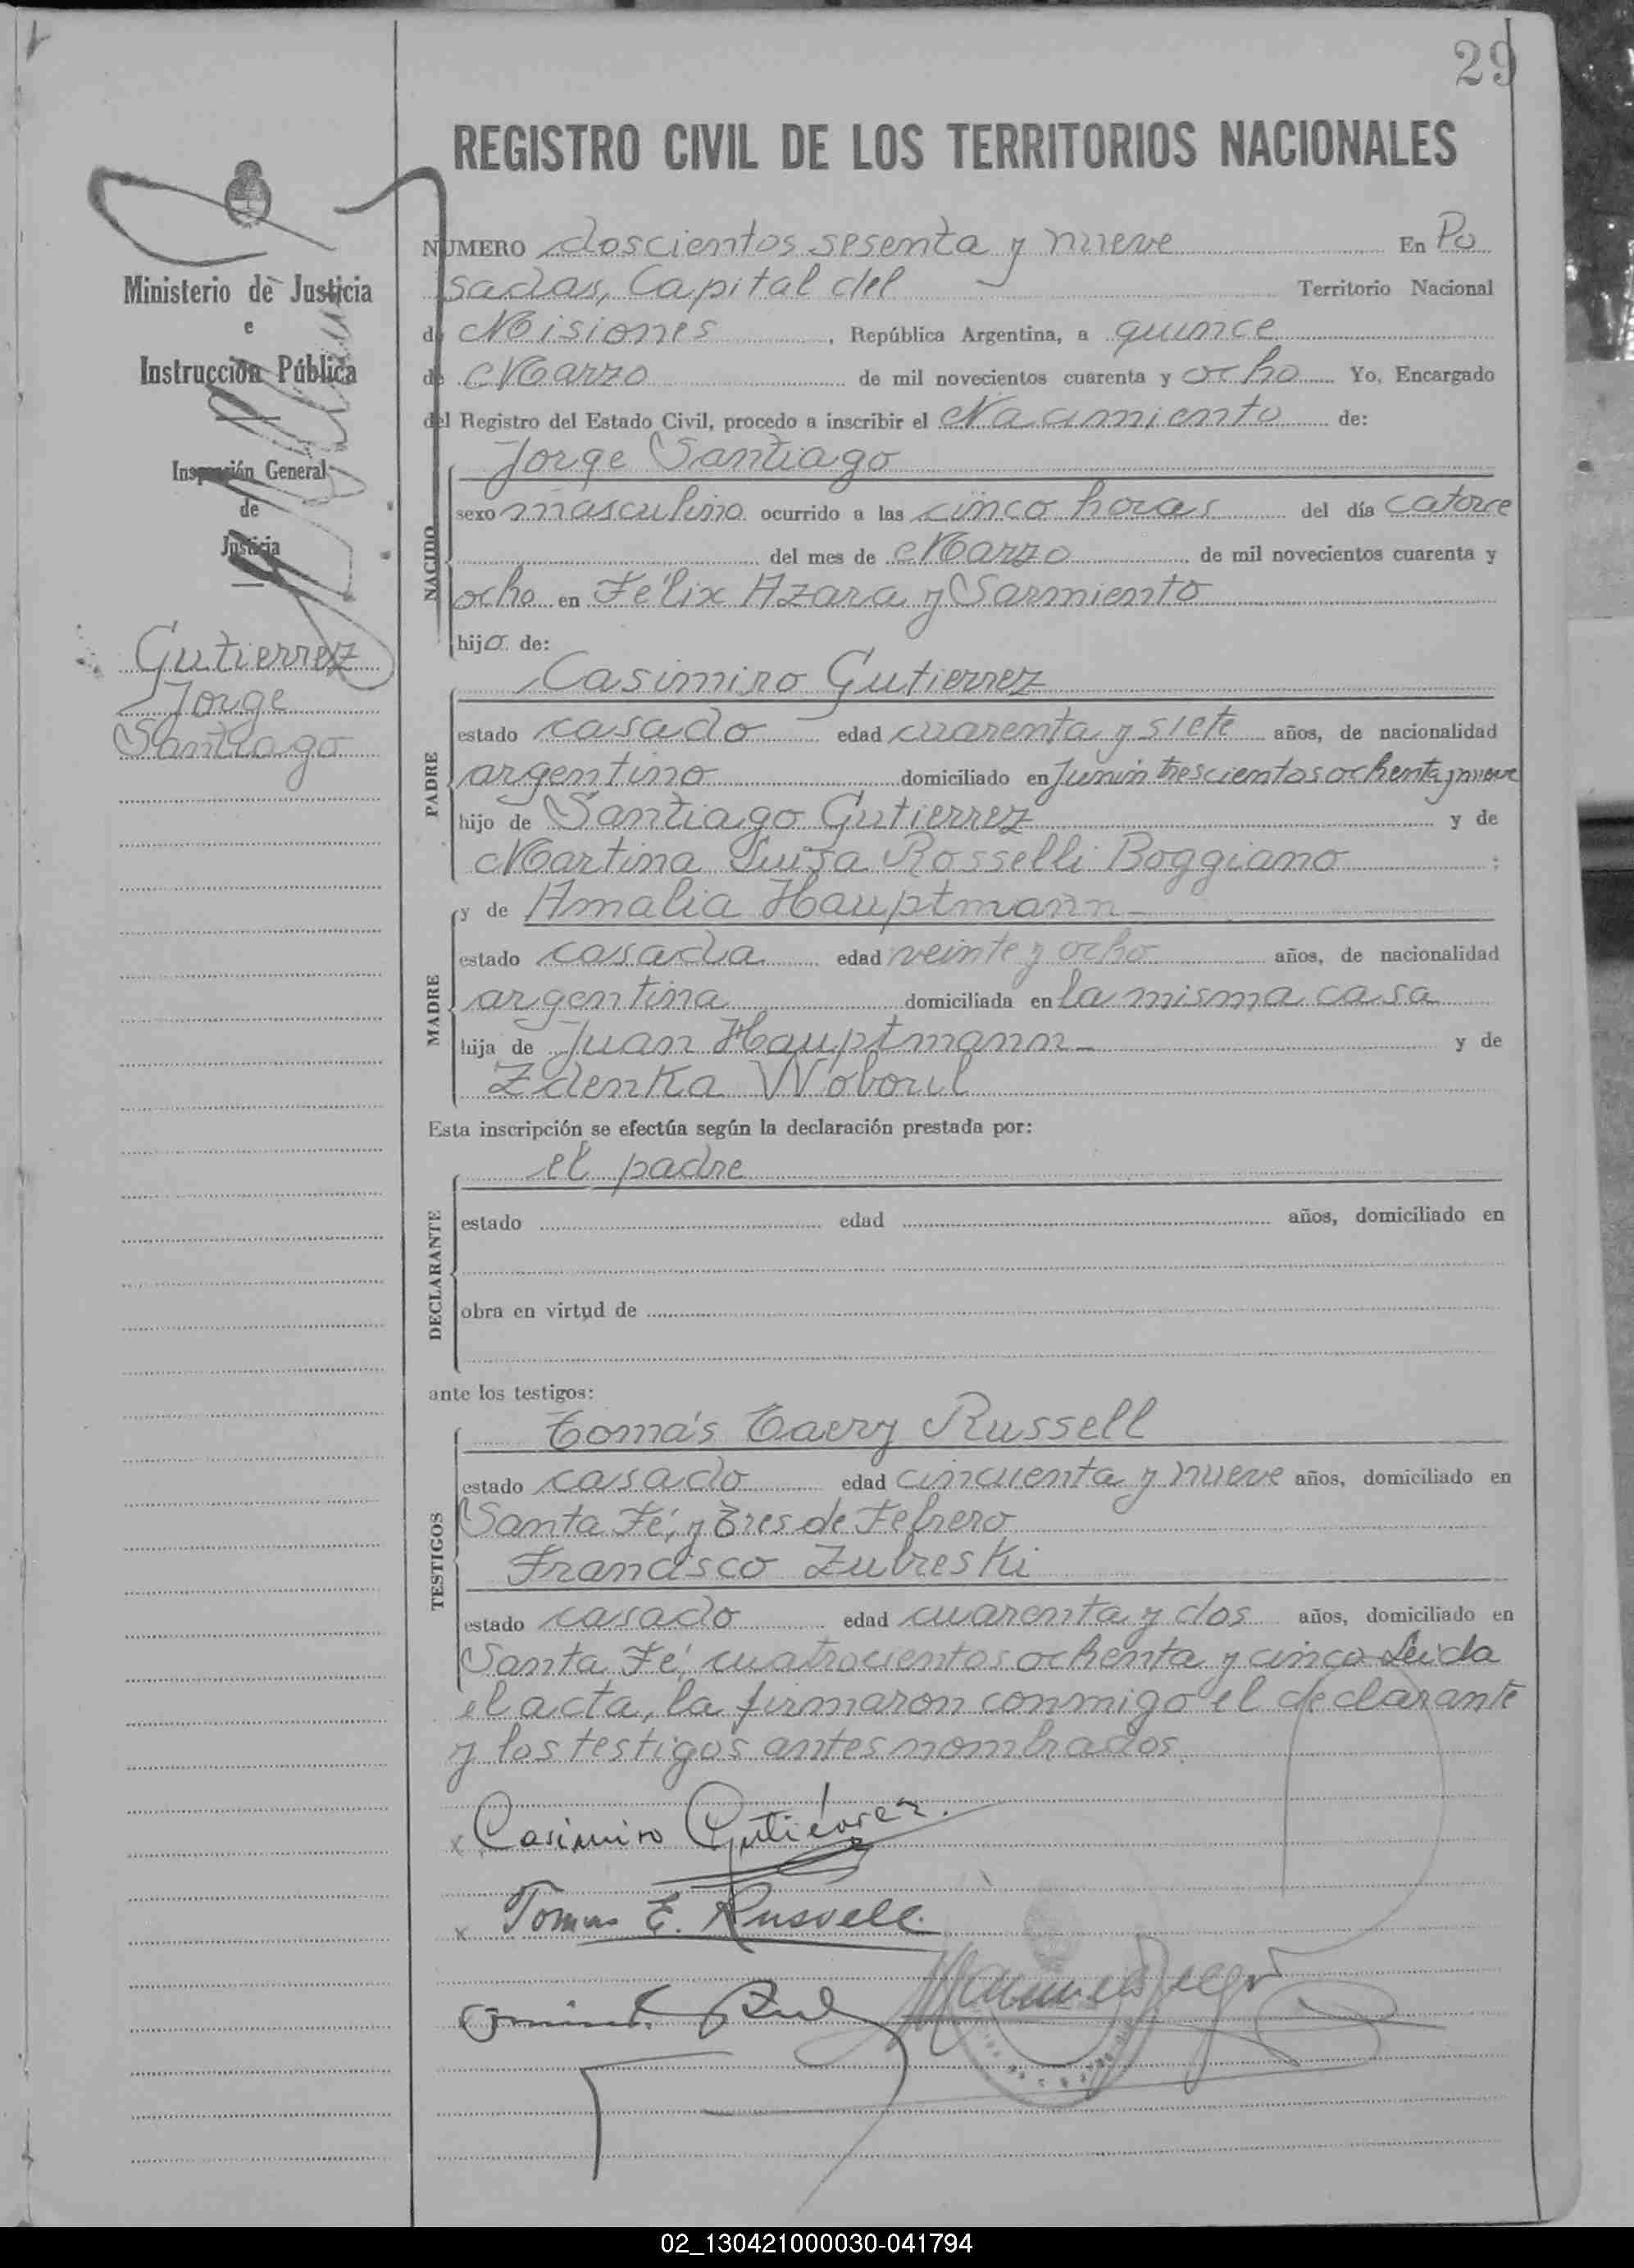 29
REGISTRO CIVIL DE LOS TERRITORIOS NACIONALES
Ministerio de Justicia
e
Instrucción Pública
Inspección General
de
Justicia
Gutierrez
Jorge
Santiago
NUMERO doscientos sesenta y nueve En Po
sadas, Capital del Territorio Nacional
de Misiones, República Argentina, a quince
de Marzo de mil novecientos cuarenta y ocho Yo, Encargado
del Registro del Estado Civil, procedo a inscribir el Nacimiento de:
NACIDO
Jorge Santiago
sexo masculino ocurrido a las cinco horas del día catorce
del mes de Marzo de mil novecientos cuarenta y
ocho en Félix Azara y Sarmiento
hijo de:
PADRE
Casimiro Gutierrez
estado casado edad cuarenta y siete años, de nacionalidad
argentino domiciliado en Junin trescientos ochenta y nueve
hijo de Santiago Gutierrez y de
Martina Luisa Rosselli Boggiano :
MADRE
y de Amalia Hauptmann
estado casada edad veinte y ocho años, de nacionalidad
argentina domiciliada en la misma casa
hija de Juan Hauptmann y de
Zdenka Woboril
Esta inscripción se efectúa según la declaración prestada por:
DECLARANTE
el padre
estado edad años, domiciliado en
obra en virtud de
ante los testigos:
TESTIGOS
Tomás Russell
estado casado edad cincuenta y nueve años, domiciliado en
Santa Fé, y Tres de Febrero
Francisco Zubreski
estado casado edad cuarenta y dos años, domiciliado en
Santa Fé, cuatrocientos ochenta y cinco Leida
el acta, la firmaron conmigo el declarante
y los testigos antes nombrados.
x Casimiro Gutiérrez.
x Tomas E. Russell.
02_130421000030-041794